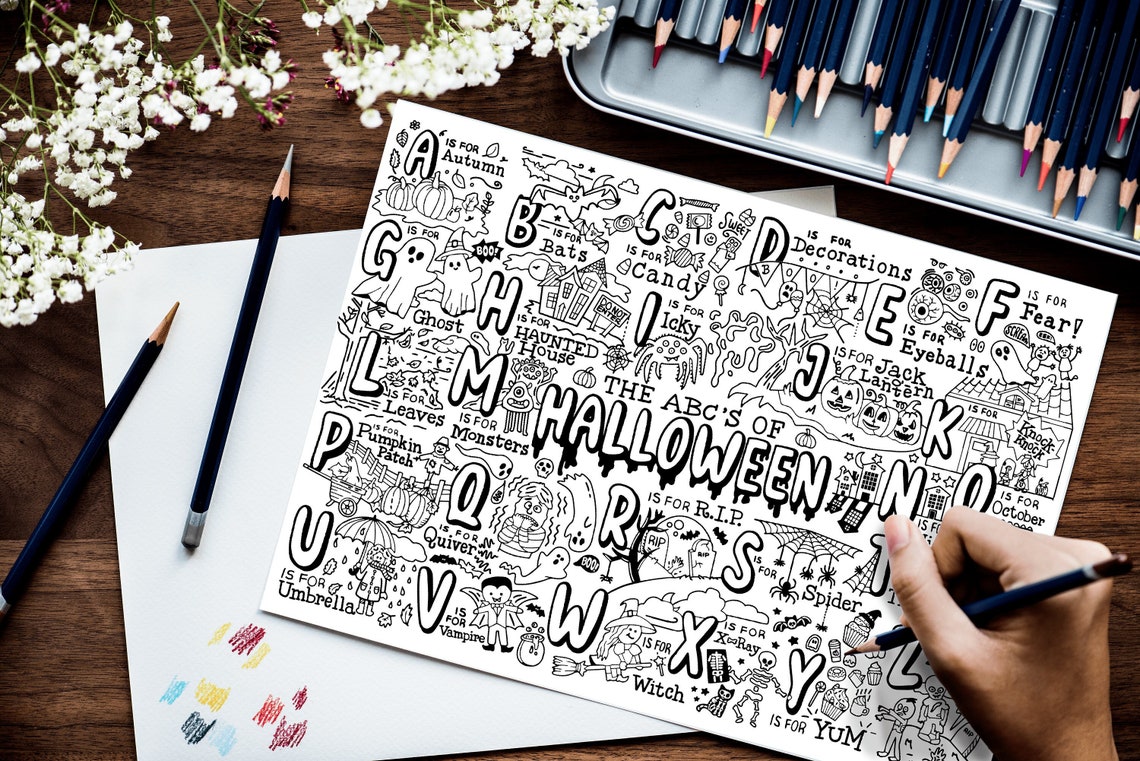 A IS FOR
Autumn
B IS FOR
Bats
C
IS FOR
Candy
SWEET
D IS FOR
Decorations
BOO
E
IS FOR
Eyeballs
F IS FOR
Fear!
G IS FOR
BOO!
Ghost
H
IS FOR
HAUNTED
House
DO NOT
ENTER
I IS FOR
Icky
J IS FOR
Jack
Lantern
K
IS FOR
Knock
Knock
L
IS FOR
Leaves
M
IS FOR
Monsters
THE ABC'S OF
HALLOWEEN
N
IS FOR
O
IS FOR
October
P IS FOR
Pumpkin
Patch
Q
IS FOR
Quiver
BOO!
R IS FOR R.I.P.
RIP
RIP
S
IS FOR
Spider
T
U
IS FOR
Umbrella
V IS
FOR
Vampire
W IS FOR
Witch
X IS FOR
X-Ray
Y
IS FOR YUM
Z